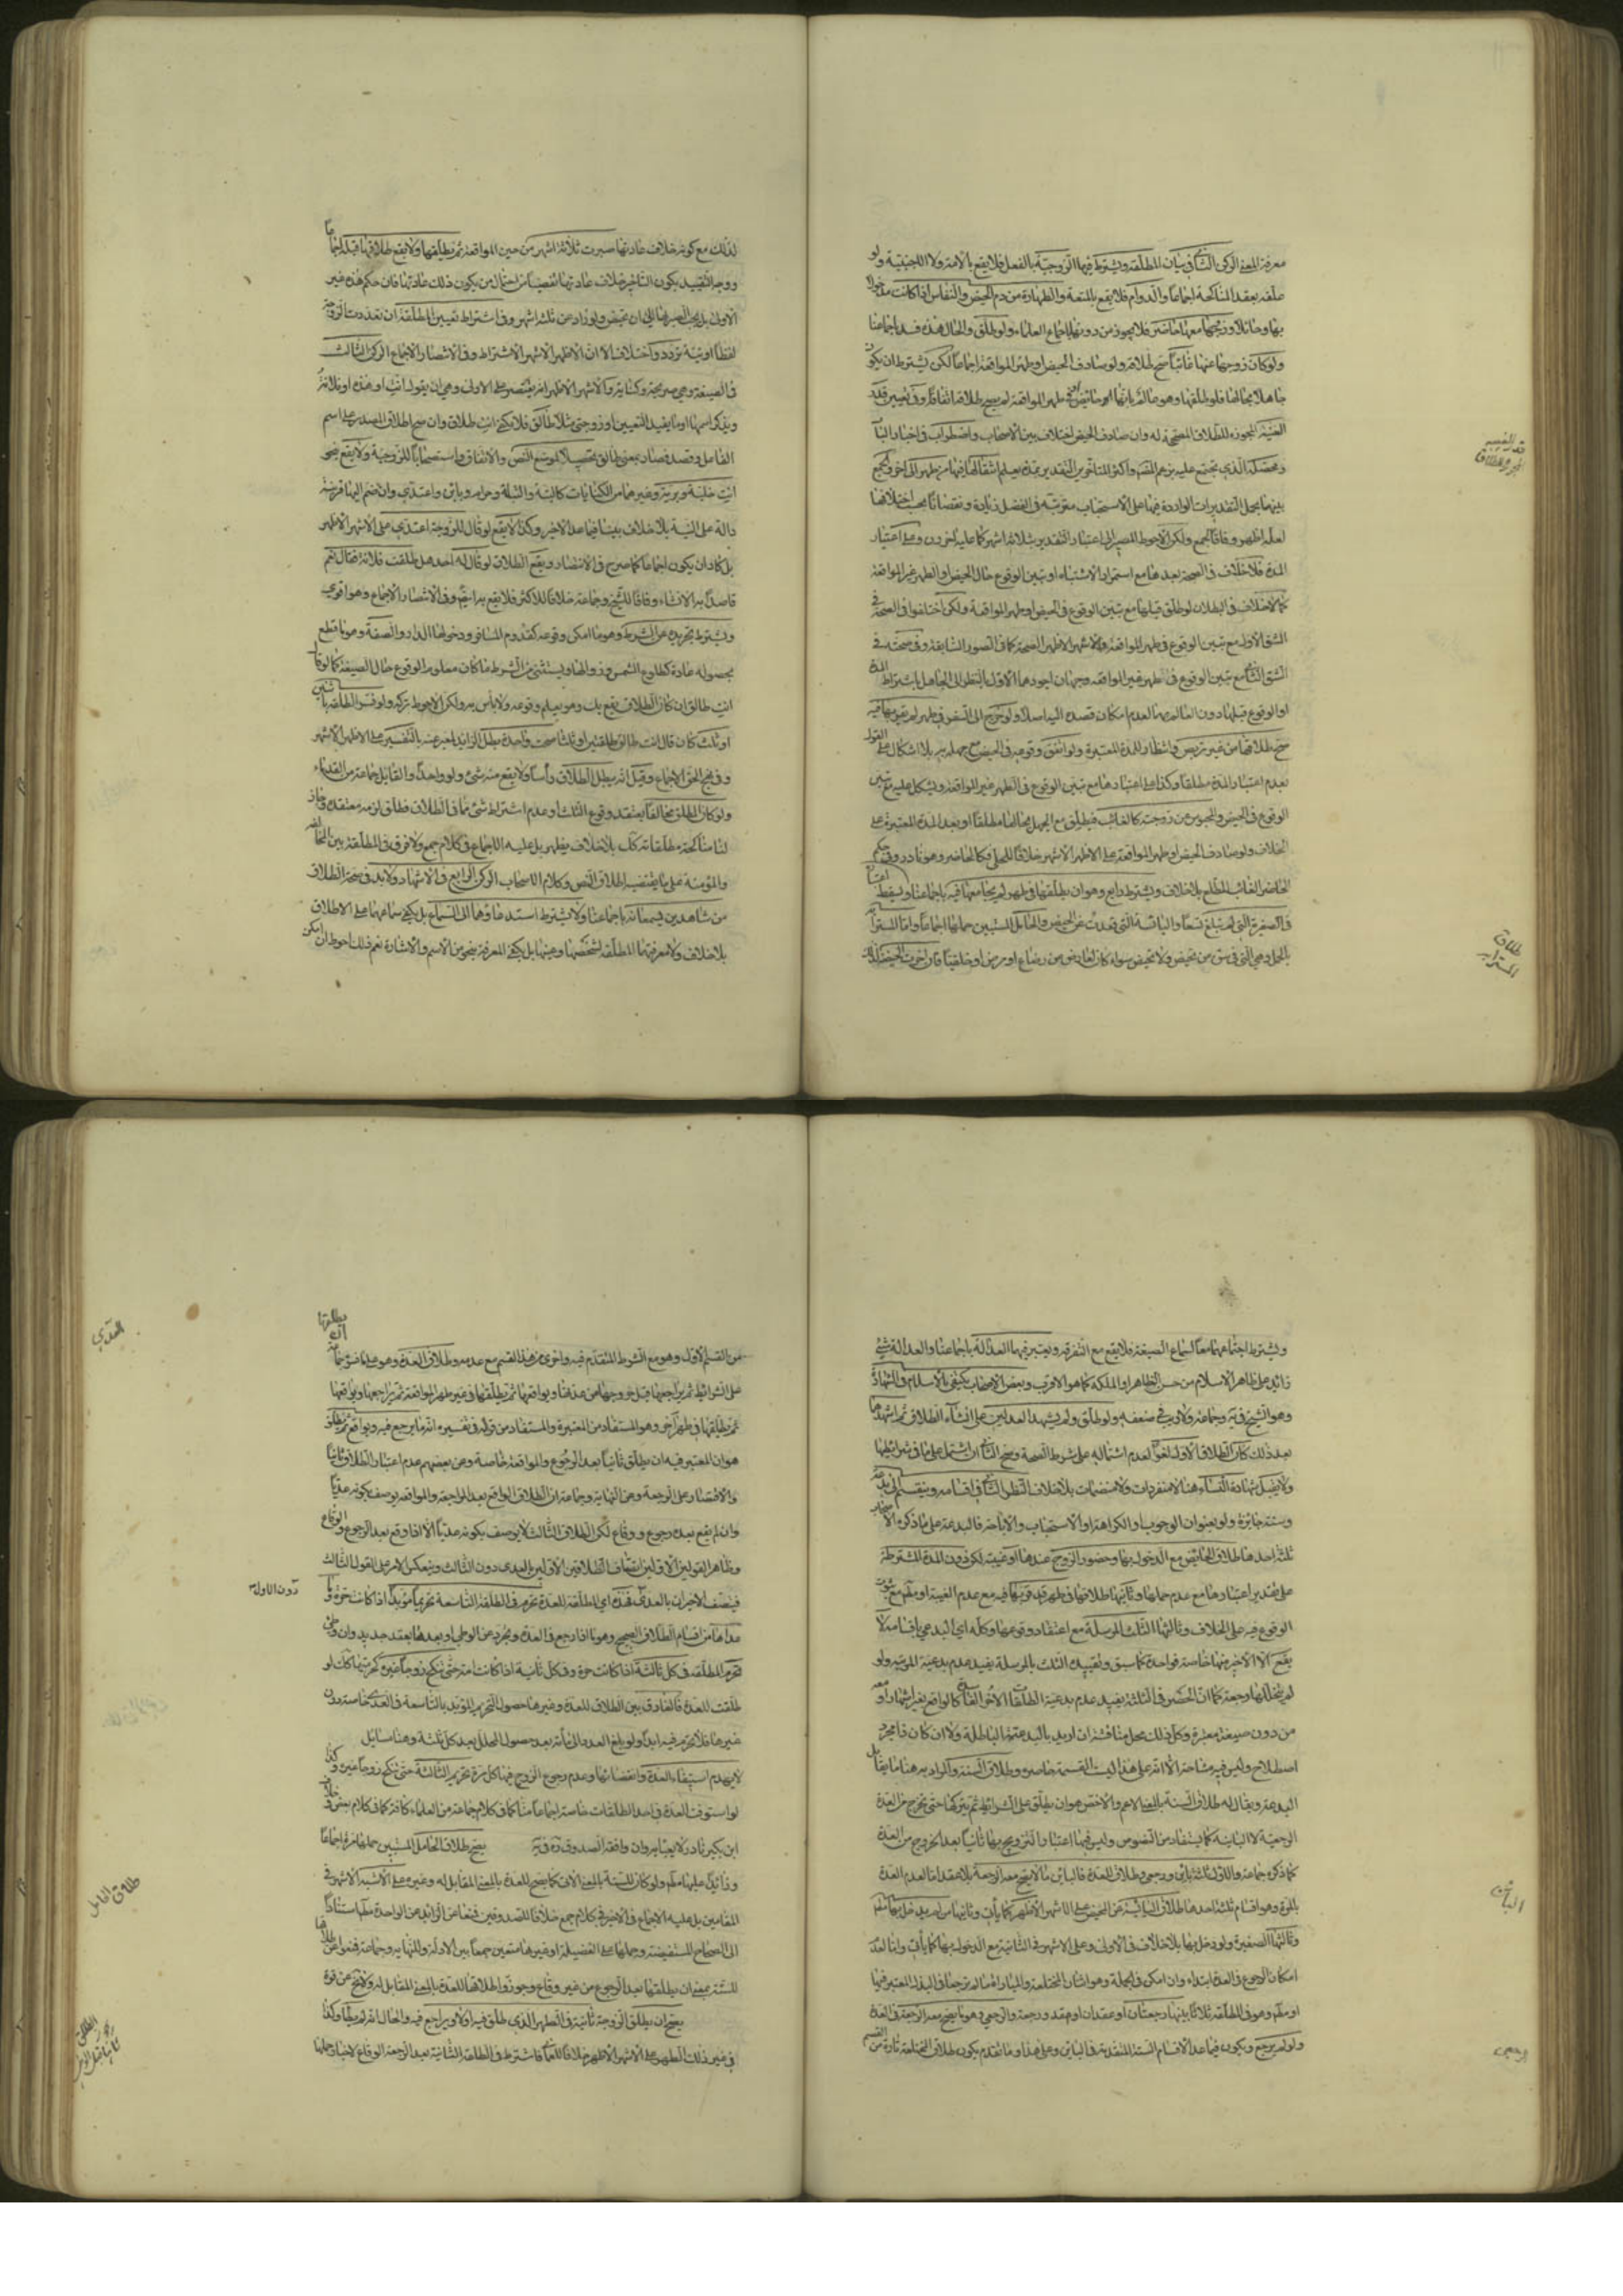 معرفة المعنى الركن الثاني في بيان المطلقة ويشترط فيها الزوجية بالفعل فلا يقع بالأمة ولا الاجنبية ولو
علقه بعقد المناكحة اجماعاً والدوام فلا يقع بالمتعة والطهارة من دم الحيض والنفاس اذا كانت مدخولا
بها وحائلا وزوجها معها حاضر فلا يجوز من دونها باجماع العلماء ولو طلق والحال هذه فسد باجماعنا
ولو كان زوجها عنها غائباً صح طلاقه ولو صادف الحيض او طهر المواقعة اجماعاً لكن يشترط ان يكون
جاهلا بحالها فلو طلقها وهو عالم بانها حائض او في طهر المواقعة لم يصح طلاقه اتفاقاً وفي تعيين قدر
الغيبة المجوزه للطلاق المصححة له وان صادف الحيض اختلاف بين الاصحاب واضطراب في اخبار الباب
بينها بحمل التقديرات الواردة فيها على الاستحباب مترتبة في الفضل زيادة ونقصاناً بحسب اختلافها
لعله اظهر وفاقاً لجمع ولكن الاحوط المصير الى اعتبار التقدير بثلاثة اشهر كما عليه اخرون وعلى اعتبار
المدة فلا خلاف في الصحة بعدها مع استمرار الاشتباه او تبين الوقوع حال الحيض او الطهر غير المواقعة
كما لا خلاف في البطلان لو طلق قبلها مع تبين الوقوع في الحيض او طهر المواقعة ولكن اختلفوا في الصحة في
الشق الاول مع تبين الوقوع في طهر المواقعة والاشهر الاظهر الصحة كما في الصور السابقة وفي صحته في
الشق الثاني مع تبين الوقوع في طهر غير المواقعه وجهان اجودهما الاول بالنظر الى الجاهل باشتراط المدة
او الوقوع قبلها دون العالم بهما لعدم امكان قصده اليه اصلا ولو خرج الى السفر في طهر لم يقربها فيه
صح طلاقها من غير تربص وانتظار للمدة المعتبرة ولو اتفق وقوعه في الحيض مع جهله به بلا اشكال على القول
بعدم اعتبار المدة مطلقا وكذا على اعتبارها مع تبين الوقوع في الطهر غير المواقعة ويشكل عليه مع تبين
الوقوع في الحيض والمحبوس عن زوجته كالغائب فيطلق مع الجهل بحالها مطلقا او بعد المدة المعتبرة على
الخلاف ولو صادف الحيض او طهر المواقعة على الاظهر الاشهر خلافاً للحلي فكالحاضر وهو نادر وفي حكم
الحاضر الغائب المطلع بلا خلاف ويشترط رابع وهو ان يطلقها في طهر لم يجامعها فيه باجماعنا ويسقط اعتباره
في الصغيرة التي لم تبلغ تسعاً واليائسة التي قعدت عن الحيض والحامل المستبين حملها اجماعاً واما المسترابة
بالحمل وهي التي في سن من تحيض ولا تحيض سواء كان لعارض من رضاع او مرض او خلقياً فان اخرت الحيضة
قدر الغيبة
المجوزة للطلاق
طلاق
المسترابه
لذلك مع كونه خلاف عادتها صبرت ثلاثة اشهر من حين المواقعة ثم يطلقها ولا يقع طلاقها قبله اجماعاً
ووجه التقييد بكون التأخير خلاف عادتها التفصّي من احتمال من يكون ذلك عادتها فان حكم هذه غير
الاولى بل يجب الصبر هنا الى ان تحيض ولو زاد عن ثلثة اشهر وفي اشتراط تعيين المطلقة ان تعددت الزوجة
لفظاً او نية تردد واختلاف الا ان الاظهر الاشهر الاشتراط وفي الانتصار الاجماع الركن الثالث
في الصيغة وهي صريحة وكناية والاشهر الاظهر انه يقتصر على الاولى وهي ان يقول انت او هذه او فلانة
ويذكر اسمها او ما يفيد التعيين او زوجتي مثلا طالق فلا يكفي انت طلاق وان صح اطلاق المصدر على اسم
الفاعل وقصد فصار بمعنى طالق تحصيلا لموضع النص والاتفاق واستصحاباً للزوجية ولا يقع بنحو
انت خلية وبرية وغيرهما من الكنايات كالبتة والبتلة وحرام وباين واعتدي وان ضم اليها قرينة
دالة على النية بلا خلاف بيننا فيما عدا الاخير وكذا لا يقع لو قال للزوجة اعتدي على الاشهر الاظهر
بل كاد ان يكون اجماعا كما صرح في الانتصار ويقع الطلاق لو قال له احد هل طلقت فلانة فقال نعم
قاصداً به الانشاء وفاقاً للشيخ وجماعة خلافا للاكثر فلا يقع به ايضم وفي الانتصار الاجماع وهو اقوى
ويشترط تجريده عن الشرط وهو ما امكن وقوعه كقدوم المسافر ودخولها الدار والصفة وهو ما قطع
بحصوله عادة كطلوع الشمس وزوالها ويستثنى من الشرط ما كان معلوم الوقوع حال الصيغة كما لو قال
انت طالق ان كان الطلاق يقع بك وهو يعلم وقوعه ولا بأس به ولكن الاحوط تركه ولو فسر الطلقة باثنتين
او ثلث كان قال انت طالق طلقتين او ثلثا صحت واحدة وبطل الزائد المعبر عنه بالتفسير على الاظهر الاشهر
وفي نهج الحق الاجماع وقيل انه يبطل الطلاق رأساً ولا يقع منه شئ ولو واحداً والقايل جماعة من القدماء
ولو كان المطلق مخالفا يعتقد وقوع الثلث او عدم اشتراط شئ مما في الطلاق فطلق لزمه معتقده وجاز
لنا مناكحة مطلقاته كك بلا خلاف يظهر بل عليه الاجماع في كلام جمع ولا فرق في المطلقة بين المخالفة
والمؤمنة على ما يقتضيه اطلاق النص وكلام الاصحاب الركن الرابع في الاشهاد ولا بد في صحة الطلاق
من شاهدين يسمعانه باجماعنا ولا يشترط استدعاؤهما الى السماع بل يكفي سماعهما على الاطلاق
بلا خلاف ولا معرفتهما المطلقة لشخصها وعينها بل يكفي المعرفة بنحو من الاسم والاشارة نعم ذلك احوط ان امكن
ويشترط اجتماعهما معاً لسماع الصيغة فلا يقع مع التفرقة ويعتبر فيهما العدالة باجماعنا والعدالة شئ
زائد على ظاهر الاسلام من حسن الظاهر او الملكة كما هو الاقرب وبعض الاصحاب يكتفي بالاسلام والشهادة
وهو الشيخ في ية وجماعة ولا ريب في ضعفه ولو طلق ولم يشهد العدلين على انشاء الطلاق ثم اشهدهما
بعد ذلك كان الطلاق الاول لغواً لعدم اشتماله على شرط الصحة وصح الثاني ان اشتمل على باقي شرائطها
ولا يقبل شهادة النساء هنا لا منفردات ولا منضمات بلا خلاف النظر الثاني في اقسامه وينقسم الى بدعة
وسنة جايزة ولو بعنوان الوجوب او الكراهة او الاستحباب والاباحة فالبدعة على ما ذكره الاصحاب
ثلثة احدها طلاق الحائض مع الدخول بها وحضور الزوج عندها او غيبته لكن دون المدة المشترطة
على تقدير اعتبارها مع عدم حملها وثانيها طلاقها في طهر قد قربها فيه مع عدم الغيبة او مطلقا مع ثبوت
الوقوع فيه على الخلاف وثالثها الثلث المرسلة مع اعتقاد وقوعها وكله اي البدعي باقسامه لا
يقع الا الاخير منها خاصة فواحدة كما سبق وتقييده الثلث بالمرسلة يفيد عدم بدعية المرتبة ولو
لم يتخللها رجعة كما ان الحصر في الثلثة يفيد عدم بدعية الطلقات الاخر الفاسدة كالواقع بغير اشهاد او
من دون صيغة معتبرة وكل ذلك محل مناقشة ان اريد بالبدعة الباطلة والا ان كان ذا مجرد
اصطلاح وليس فيه مشاحة الا انه على هذا ليست القسمة حاصرة وطلاق السنة والمراد به هنا ما يقابل
البدعة ويقال له طلاق السنة بالمعنى الاعم والاخص هو ان يطلق على الشرائط ثم يتركها حتى تخرج من العدة
الرجعية لا الباينة كما يستفاد من النصوص وليس فيها اعتبار التزويج بها ثانياً بعد الخروج من العدة
كما ذكره جماعة والاول ثلثة باين ورجعي وطلاق العدة فالباين ما لا يصح معه الرجعة بلا عقد اما لعدم العدة
بالمرة وهو اقسام ثلثة احدها طلاق اليائسة عن الحيض على الاشهر الاظهر كما يأتي وثانيها من لم يدخل بها مطلقا
وثالثها الصغيرة ولو دخل بها بلا خلاف في الاولى وعلى الاشهر في الثانية مع الدخول بها كما يأتي واما لعدم
امكان الرجوع في العدة ابتداء وان امكن في الجملة وهو اثنان المختلعة والمباراة ما لم ترجعا في البذل المعتبر فيها
او مطلقا وهو في المطلقة ثلاثا بينها رجعتان او عقدان او عقد ورجعة والرجعي وهو ما يصح معه الرجعة في العدة
ولو لم يرجع ويكون فيما عدا الاقسام الستة المتقدمة في الباين وعلى هذا وما تقدم يكون طلاق المختلعة تارة من القسم
البائن
الرجعي
من القسم الاول وهو مع الشرط المتقدم فيه واخرى من هذا القسم مع عدمه وطلاق العدة وهو على ما صرح به جماعة ان يطلقها
على الشرائط ثم يراجعها قبل خروجها من عدتها ويواقعها ثم يطلقها في غير طهر المواقعة ثم يراجعها ويواقعها
ثم يطلقها في طهر آخر وهو المستفاد من المعتبرة والمستفاد من قوله في تفسيره انه ما يرجع فيه ويواقع ثم يطلق
هو ان المعتبر فيه ان يطلق ثانياً بعد الرجوع والمواقعة خاصة وعن بعضهم عدم اعتبار الطلاق ثانياً
والاقتصار على الرجعة وعن النهاية وجماعة ان الطلاق الواقع بعد المراجعة والمواقعة يوصف بكونه عدياً
وان لم يقع بعده رجوع ووقاع لكن الطلاق الثالث لا يوصف بكونه عدياً الا اذا وقع بعد الرجوع والوقاع
وظاهر القولين الاولين اتصاف الطلاقين الاولين بالعدي دون الثالث وينعكس الامر على القول الثالث
فيتصف الاخيران بالعدي فهذه اي المطلقة للعدة تحرم في الطلقة التاسعة تحريماً مؤبداً اذا كانت حرة وما
عداها من اقسام الطلاق الصحيح وهو ما اذا رجع في العدة وتجرد عن الوطي او بعدها بعقد جديد وان وطئ
تحرم المطلقه في كل ثالثة اذا كانت حرة وفي كل ثانية اذا كانت امة حتى تنكح زوجاً غيره كحرمتها كك لو
طلقت للعدة فالفارق بين الطلاق للعدة وغيرها حصول التحريم المؤبد بالتاسعة في العدي خاسة دون
غيرها فلا تحرم فيه ابداً ولو بلغ العدد الى مأة بعد حصول المحلل بعد كل ثلثة وهنا مسايل
لا يهدم استيفاء العدة وانقضائها وعدم رجوع الزوج فيها كل مرة تحريم الثالثة حتى تنكح زوجاً غيره وكذا
لو استوفت العدة في احد الطلقات خاسة اجماعاً منا كما في كلام جماعة من العلماء كافة كما في كلام بعض وخلاف
ابن بكير نادر لا يعبأ به وان وافقه الصدوق في يه يصح طلاق الحامل المستبين حملها مرة اجماعاً
وزائداً عليها مطلقا ولو كان للسنة بالمعنى الاتي كما يصح للعدة بالمعنى المقابل له وغيره على الاشبه الاشهر في
المقامين بل عليه الاجماع في الاخير في كلام جمع خلافا للصدوقين فمنعا عن الزائد عن الواحدة مطلقا استناداً
الى الصحاح المستفيضة وحملها على الفضيلة او غيرها متعين جمعاً بين الادلة وللنهاية وجماعة فمنعوا عن طلاقها
للسنة بمعنى ان يطلقها بعد الرجوع من غير وقاع وجوزوا طلاقها للعدة بالمعنى المقابل له ولا يخلو عن قوة
يصح ان يطلق الزوجة ثانية في الطهر الذي طلق فيه اولا ويراجع فيه والحال انه لم يطأ وكذا
في غير ذلك الطهر على الاشهر الاظهر خلافا للعماني فاشترط في الطلقة الثانية بعد الرجعة الوقاع
العدي
دون الاول
طلاق الحامل